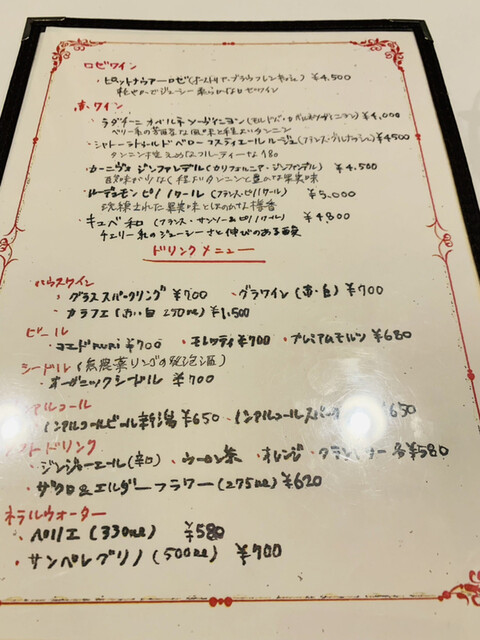 ロゼワイン
・ピットナウアー・ロゼ(オーストリア・ブラウフレンキッシュ) ¥4,500
ジューシー
ロゼワイン
赤ワイン
カベルネ・ソーヴィニヨン ¥4,000
ベリー系の
タンニン
・シャトー ルージュ(フランス・グルナッシュ) ¥4500
タンニン フルーティーな
・カーニヴォ ジンファンデル(カリフォルニア・ジンファンデル) ¥4,500
酸味が少なく程よいタンニンと豊かな果実味
ピノノワール(フランス・ピノノワール) ¥5,000
洗練された果実味とほのかな樽香
・キュベ 和(フランス・サンソー&ピノノワール) ¥4,800
チェリー系のジューシーさと伸びのある酸
ドリンクメニュー
ハウスワイン
・グラススパークリング ¥700 ・グラスワイン(赤・白) ¥700
・カラフェ(赤・白 250ml) ¥1,500
ビール
・コエド ¥700 ・モレッティ ¥700 ・プレミアムモルツ ¥680
シードル(無農薬リンゴの発泡酒)
・オーガニックシードル ¥700
アルコール
ノンアルコールビール 新潟 ¥650 ・ノンアルコールスパー ¥650
フトドリンク
・ジンジャーエール(辛口) ・ウーロン茶 ・オレンジ ・クランベリー 各¥580
・ザクロ&エルダーフラワー(275ml) ¥620
ネラルウォーター
・ペリエ(330ml) ¥580
・サンペレグリノ(500ml) ¥700